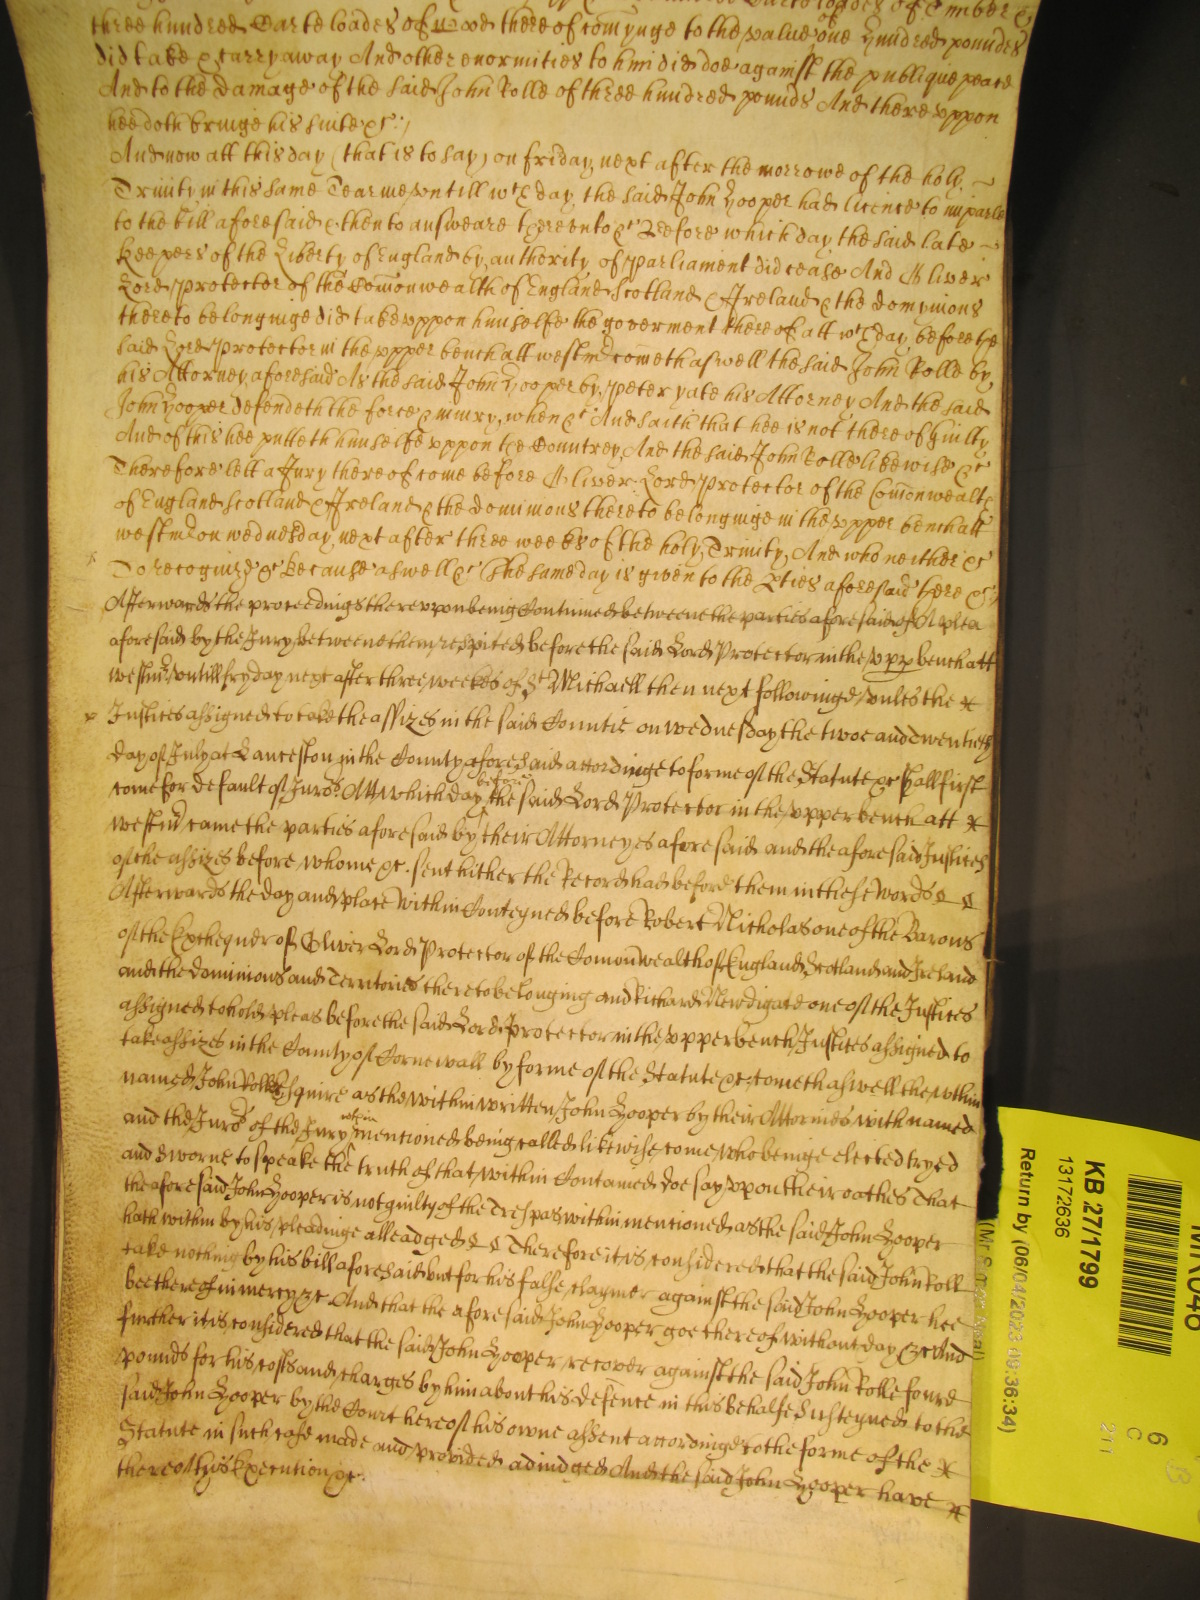 Carte loades of Timber &
three hundred Carte loades of wood thereof comynge to the value of one hundred poundes
did take & carry away And other enormities to him did doe against the publique peace
And to the damage of the said John Rolle of three hundred pounds And thereuppon
hee doth bringe his suite &c:/
And now att this day (that is to say) on friday next after the morrowe of the holy
Trinity in this same Tearme untill wch day the said John Hooper had licence to imparle
to the bill aforesaid & then to answeare thereento &c Before which day the said late
Keepers of the Liberty of England by authority of Parliament did cease And Oliver
Lord Protector of the Comonwealth of England Scotland & Ireland & the domynions
thereto belonginge did take uppon himselfe the goverment thereof att wch day before the
said Lord Protector in the upper bench att Westmr cometh aswell the said John Rolle by
his Attorney aforesaid As the said John Hooper by Peter yate his Attorney And the said
John Hooper defendeth the force & iniury when &c And saith that hee is not thereof guilty
And of this hee putteth himselfe uppon the Countrey And the said John Rolle likewise &c
Therefore lett a Jury thereof come before Oliver Lord Protector of the Comonwealth
of England Scotland & Ireland & the dominions thereto belonginge in the upper bench att
westmr on wednesday next after three weeks of the holy Trinity And who neither &c
To recognize &c Because aswell &c The same day is given to the pties aforesaid here &c:/
Afterwards the proceedings thereupon being Continued betweene the parties aforesaid of A plea
aforesaid by the Jury betweene them respited before the said Lord Protector in the upp bench att
westmr untill fryday next after three weekes of St Michaell then next followinge unles the
Justices assigned to take the assizes in the said Countie on wednesday the twoe and twentieth
day of July at Lanceston in the County aforesaid accordinge to forme of the Statute &c shall first
come for default of Jurors Att which day before the said Lord Protector in the upper bench att
westmr came the parties aforesaid by their Attorneyes aforesaid and the aforesaid Justices
of the assizes before whome &c. sent hither the Record had before them in these words
Afterwards the day and place within Conteyned before Robert Nicholas one of the Barons
of the Exchequer of Oliver Lord Protector of the Comonwealth of England Scotland and Ireland
and the dominions and Territories thereto belonging and Richard Newdigate one of the Justices
assigned to hold pleas before the said Lord Protector in the upper bench Justices assigned to
take assizes in the County of Cornewall by forme of the Statute &c. cometh aswell the within
named John Rolle Esquire as the within written John Hooper by their Attornies within named
and the Jurors of the Jury within mentioned being called likewise come, who beinge elected tryed
and sworne to speake the truth of that within Contained doe say upon their oathes That
the aforesaid John Hooper is not guilty of the Trespas within mentioned as the said John Hooper
hath within by his pleadinge alleadged Therefore it is considered that the said John Roll
take nothing by his bill aforesaid but for his false claymer against the said John Hooper hee
bee thereof in mercy &c. And that the aforesaid John Hooper goe thereof without day &c And
further it is considered that the said John Hooper recover against the said John Rolle foure
pounds for his costs and charges by him about his defence in this behalfe Susteyned to the
said John Hooper by the Court here of his owne assent accordinge to the forme of the
Statute in such case made and provided adiudged And the said John Hooper have
thereof his Execution &c.
KB 27/1799
13172636
Return by (06/04/2023 09:36:34)
6
C
211